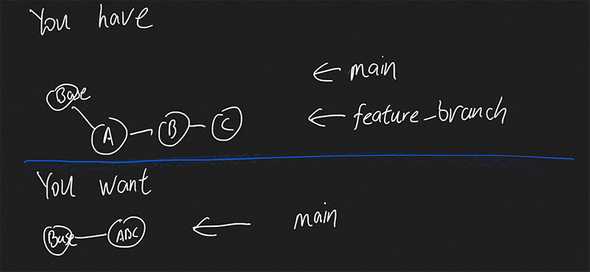 You have
Base
← main
A B C
← feature_branch
You want
Base ABC
← main